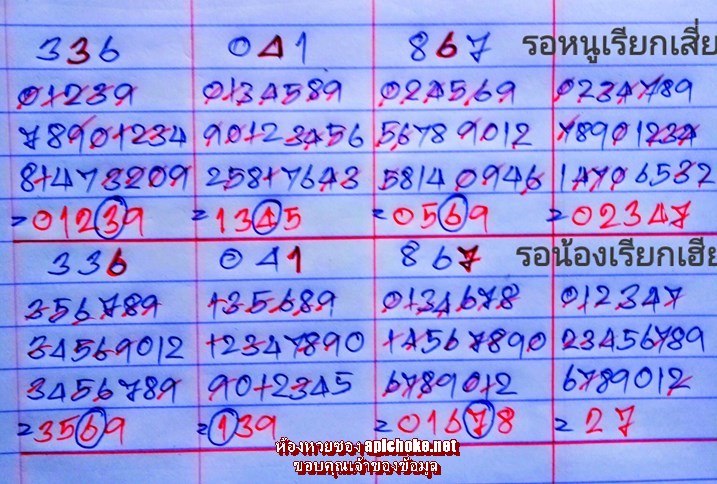 336 041 867 รอหนูเรียกเสี่ย
01239 0134589 024569 0234789
78901234 90123456 56789012 78901234
81473209 25817643 58140946 14706532
=01239 =1345 =0569 =02347
336 041 867 รอน้องเรียกเฮีย
356789 135689 0134678 012347
34569012 12347890 14567890 23456789
3456789 9012345 6789012 6789012
=3569 =139 =01678 =27
ห้องหวยซอง apichoke.net
ขอบคุณเจ้าของข้อมูล